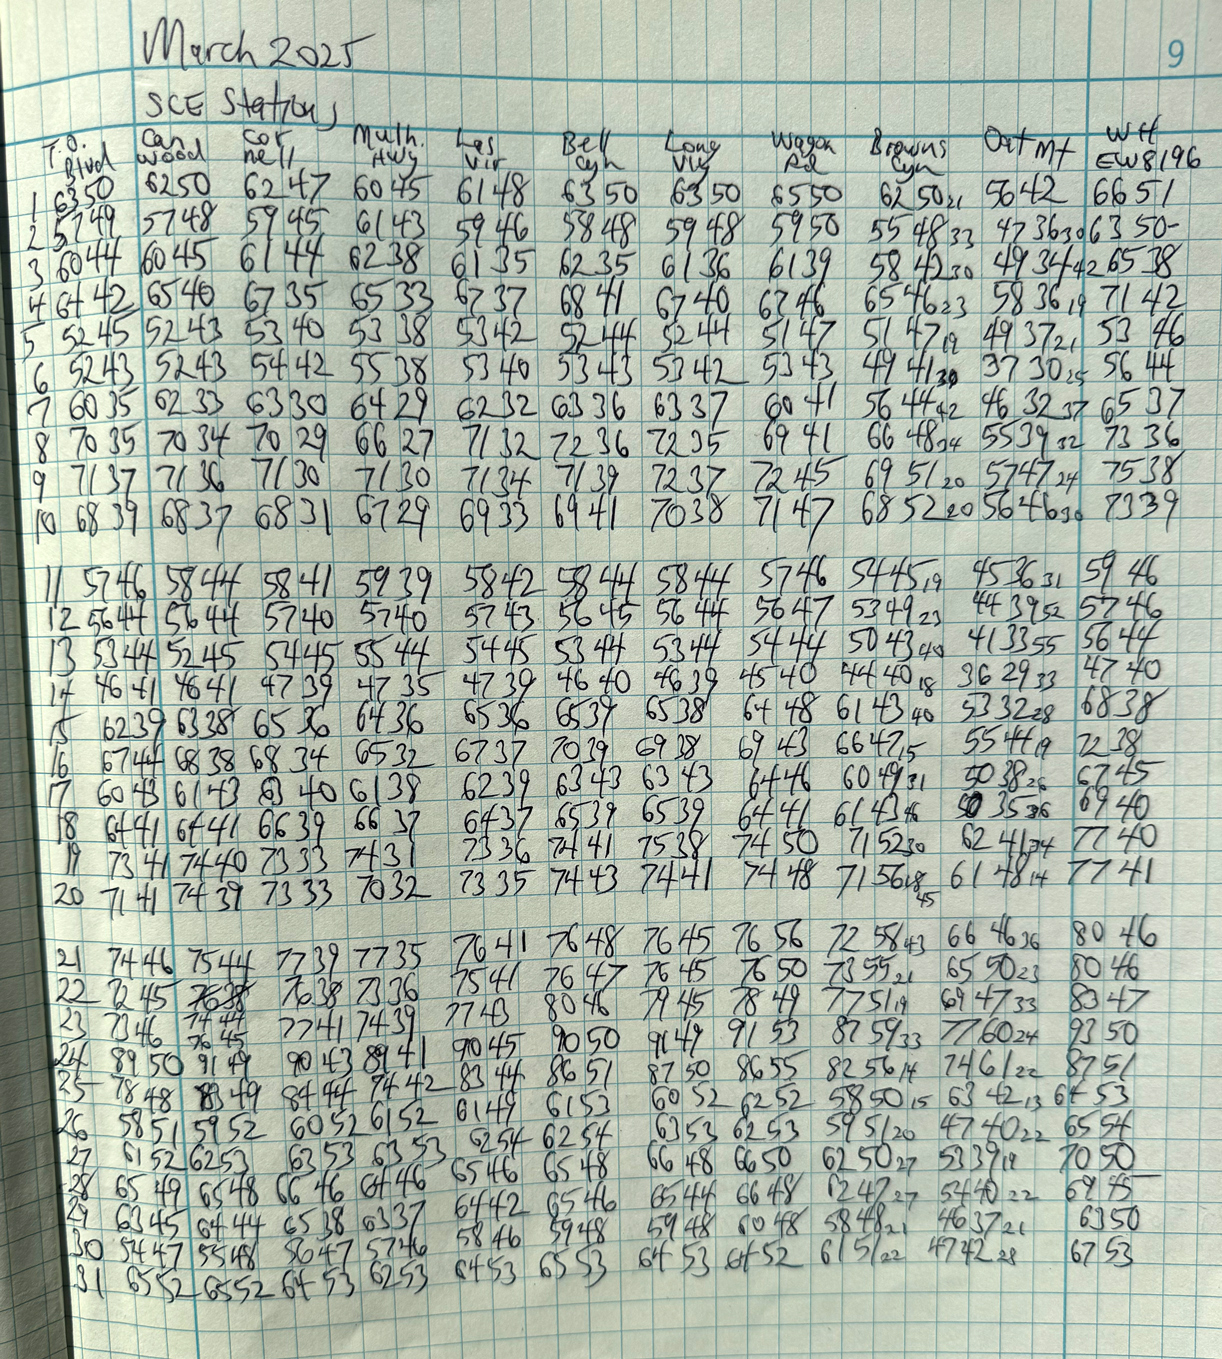 March 2025
9
SCE Stations
T.O. Blvd Can wood Cor nell Mulh. Hwy Las Vir Bell Cyn Long Vly Wagon Rd Browns Cyn Oat Mt WH EW8196
1 6350 6250 6247 6045 6148 6350 6350 6550 6250 21 5642 6651
2 5749 5748 5945 6143 5946 5848 5948 5950 5548 33 4736 30 6350-
3 6044 6045 6144 6238 6135 6235 6136 6139 5842 30 4934 42 6538
4 6442 6540 6735 6533 6737 6841 6740 6746 6546 23 5836 19 7142
5 5245 5243 5340 5338 5342 5244 5244 5147 5147 19 4937 21 5346
6 5243 5243 5442 5538 5340 5343 5342 5343 4941 30 3730 25 5644
7 6035 6233 6330 6429 6232 6336 6337 6041 5644 42 4632 37 6537
8 7035 7034 7029 6627 7132 7236 7235 6941 6648 34 5539 32 7336
9 7137 7136 7130 7130 7134 7139 7237 7245 6951 20 5747 24 7538
10 6839 6837 6831 6729 6933 6941 7038 7147 6852 20 5646 30 7339
11 5746 5844 5841 5939 5842 5844 5844 5746 5445 19 4536 31 5946
12 5644 5644 5740 5740 5743 5645 5644 5647 5349 23 4439 52 5746
13 5344 5245 5445 5544 5445 5344 5344 5444 5043 40 4133 55 5644
14 4641 4641 4739 4735 4739 4640 4639 4540 4440 18 3629 33 4740
15 6239 6338 6536 6436 6536 6539 6538 6448 6143 40 5332 28 6838
16 6744 6838 6834 6532 6737 7039 6938 6943 6647 15 5544 19 7238
17 6043 6143 6340 6138 6239 6343 6343 6446 6049 31 5038 26 6745
18 6441 6441 6639 6637 6437 6539 6539 6441 6143 46 5035 36 6940
19 7341 7440 7333 7431 7336 7441 7538 7450 7152 30 6241 34 7740
20 7141 7439 7333 7032 7335 7443 7441 7448 7156 18 45 6148 14 7741
21 7446 7544 7739 7735 7641 7648 7645 7656 7258 43 6646 36 8046
22 7245 7638 7336 7541 7647 7645 7650 7355 21 6550 23 8046
23 7346 7645 7741 7439 7743 8046 7945 7849 7751 19 6947 33 8347
24 8950 9149 9043 8941 9045 9050 9149 9153 8759 33 7760 24 9350
25 7848 8349 8444 7442 8344 8651 8750 8655 8256 14 7461 22 8751
26 5851 5952 6052 6152 6149 6153 6052 6252 5850 15 6342 13 6453
27 6152 6253 6353 6353 6254 6254 6353 6253 5951 20 4740 22 6554
28 6549 6548 6646 6446 6546 6548 6648 6650 6250 27 5339 19 7050
29 6345 6444 6538 6337 6442 6546 6544 6648 6247 27 5440 22 6945
30 5447 5548 5647 5746 5846 5948 5948 6048 5848 21 4637 21 6350
31 6552 6552 6453 6253 6453 6553 6453 6452 6151 22 4742 28 6753